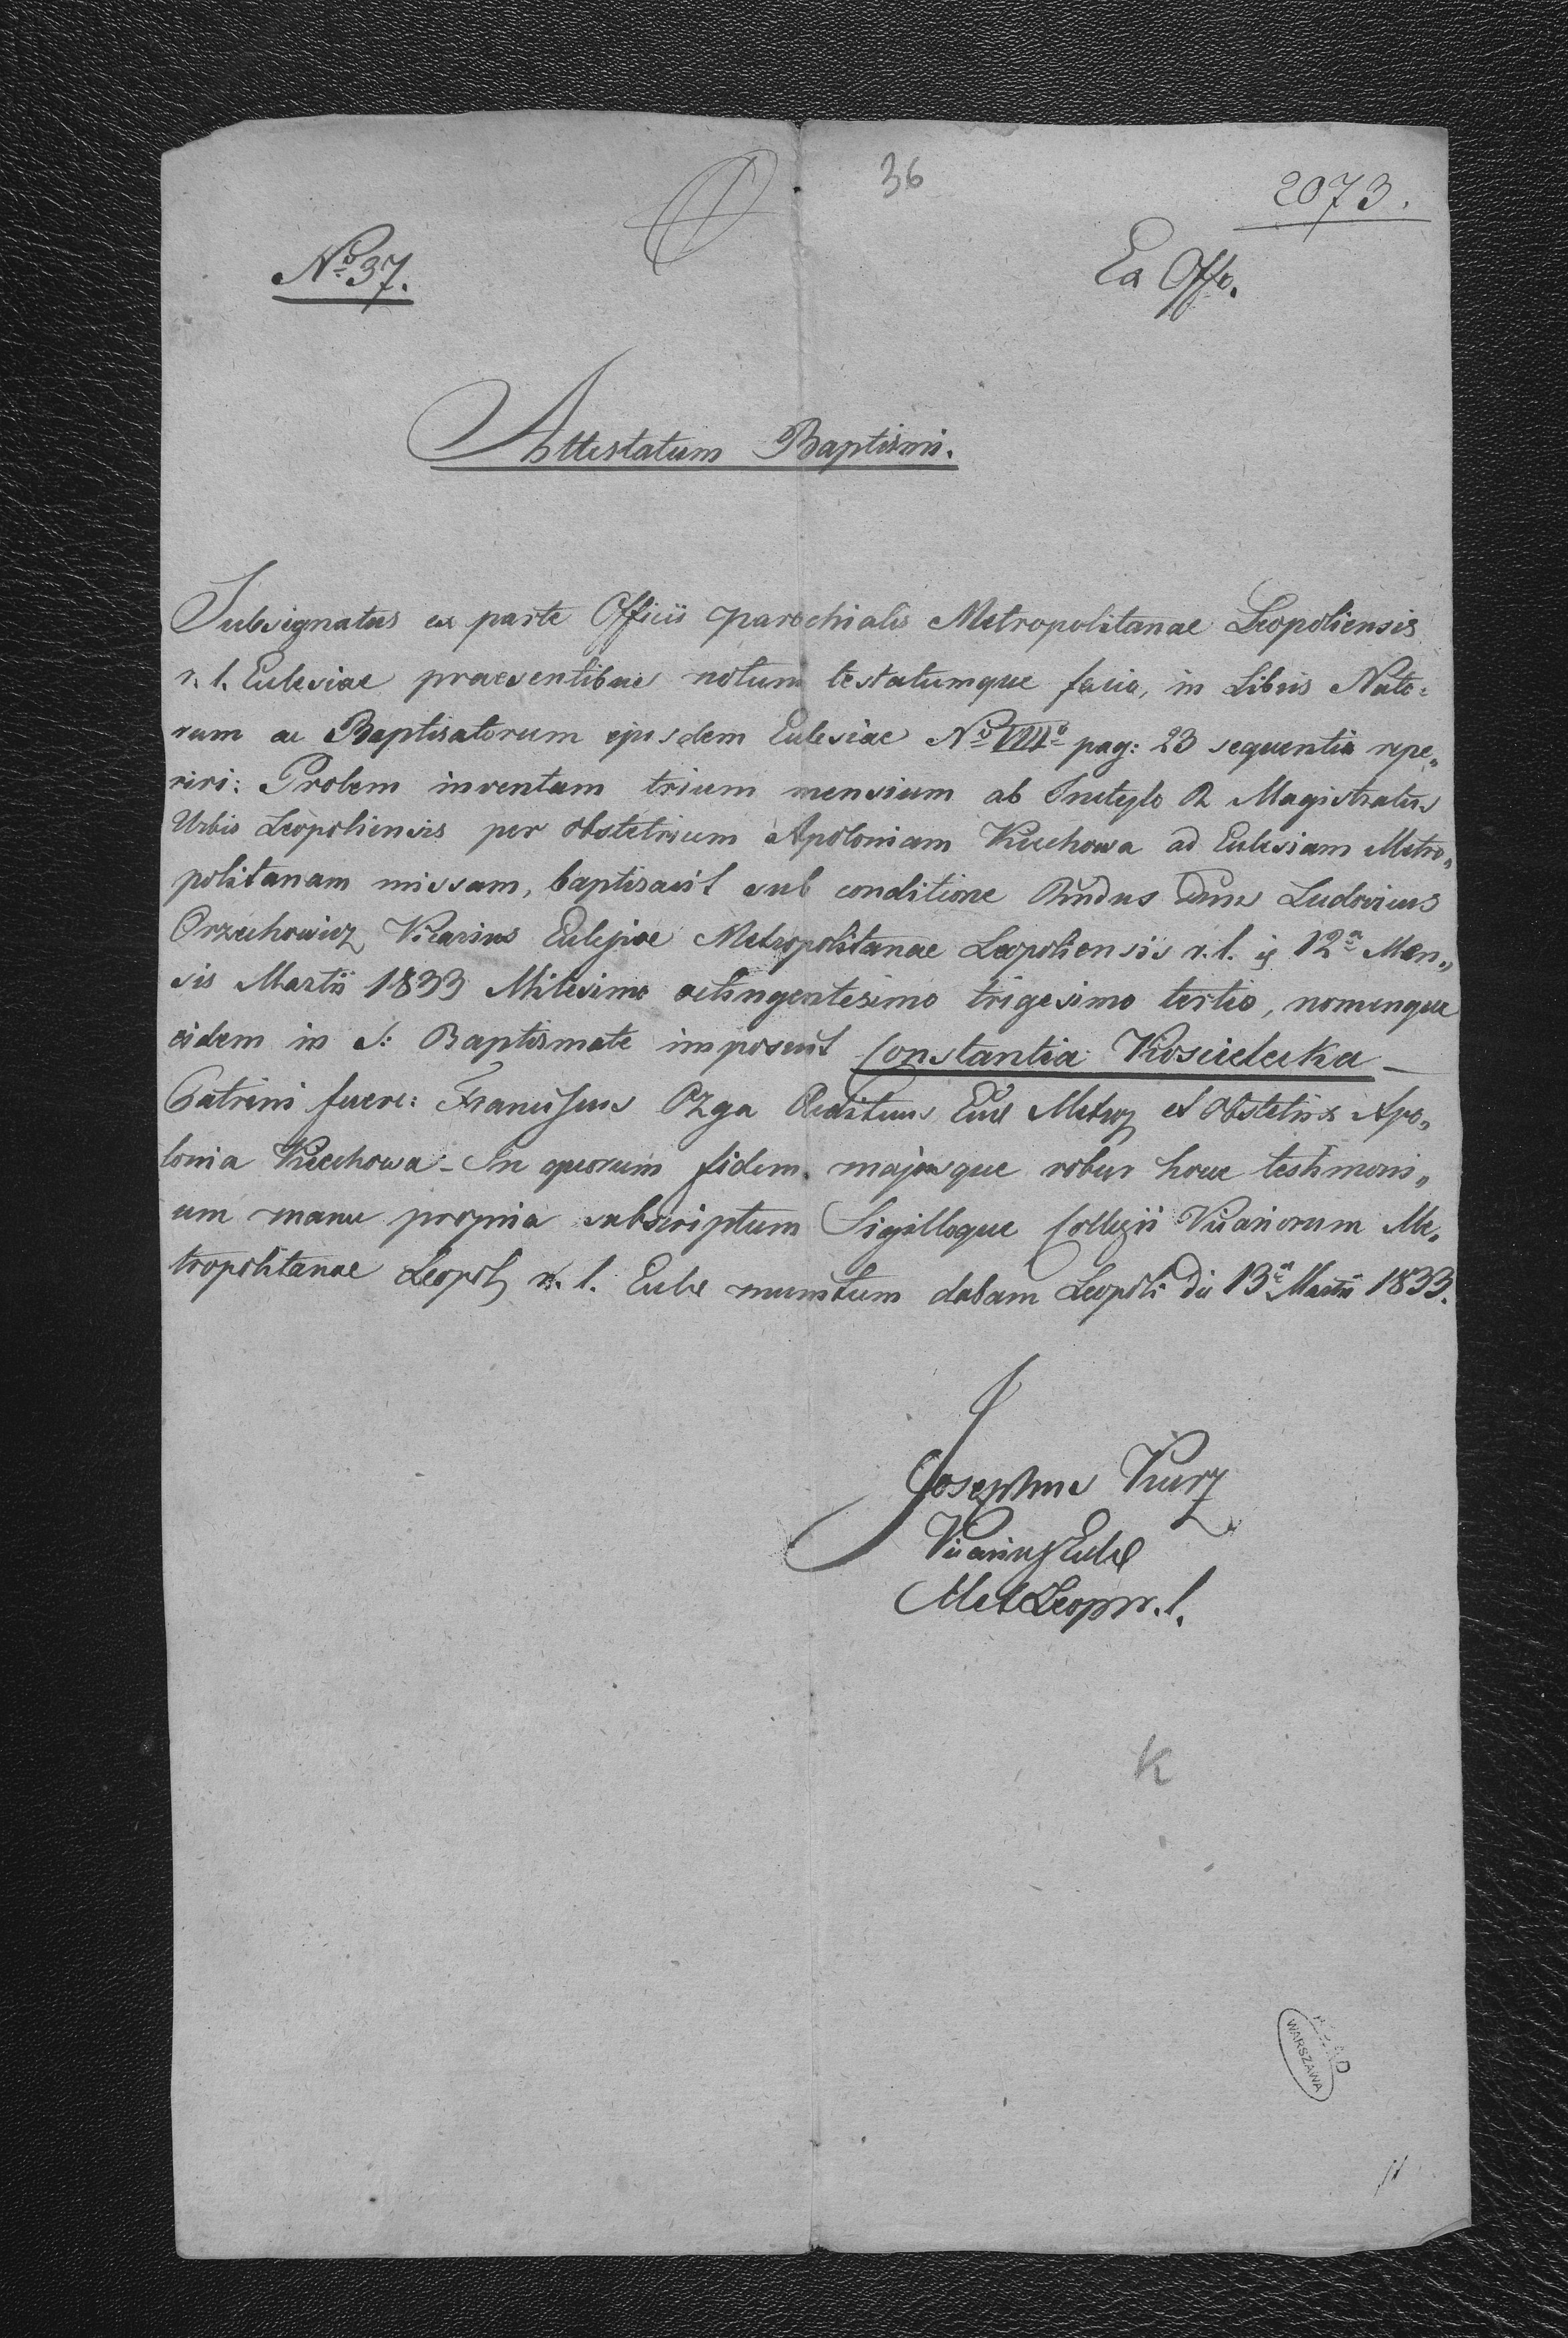 36
2073.
Nº 37.
Ex Offo.
Attestatum Baptismi.
Subsignatus ex parte Officii parochialis Metropolitanae Leopoliensis
r. l. Eclesiae praesentibus notum testatumque facio, in Libris Nato=
rum ac Baptisatorum ejusdem Eclesiae Nº VIIIº pag: 23 sequentia repe„
riri: Prolem inventam trium mensium ab Inclyto Magistratus
Urbis Leopoliensis per obstetricem Apoloniam Kuchowa ad Eclesiam Metro„
politanam missam, baptisavit sub conditione Rndus Dnus Ludovicus
Orzechowicz Vicarius Eclesiae Metropolitanae Leopoliensis r. l. 12ª Men„
sis Martii 1833 Milesimo octingentesimo trigesimo tertio, nomenque
eidem in S: Baptismate imposuit Constantia Koscielecka —
Patrini fuere: Franciscus Ozga Metrop et Obstetrix Apo„
lonia Kuchowa – In quorum fidem majusque robur hocce testimoni„
um manu propria subscriptum Sigilloque Collegii Vicariorum Me„
tropolitanae Leopol r. l. Ecle munitum dabam Leopoli die 13ª Martii 1833.
Josephus Kurz
Vicarius Ecle
Met Leop r. l.
K
AGAD
WARSZAWA